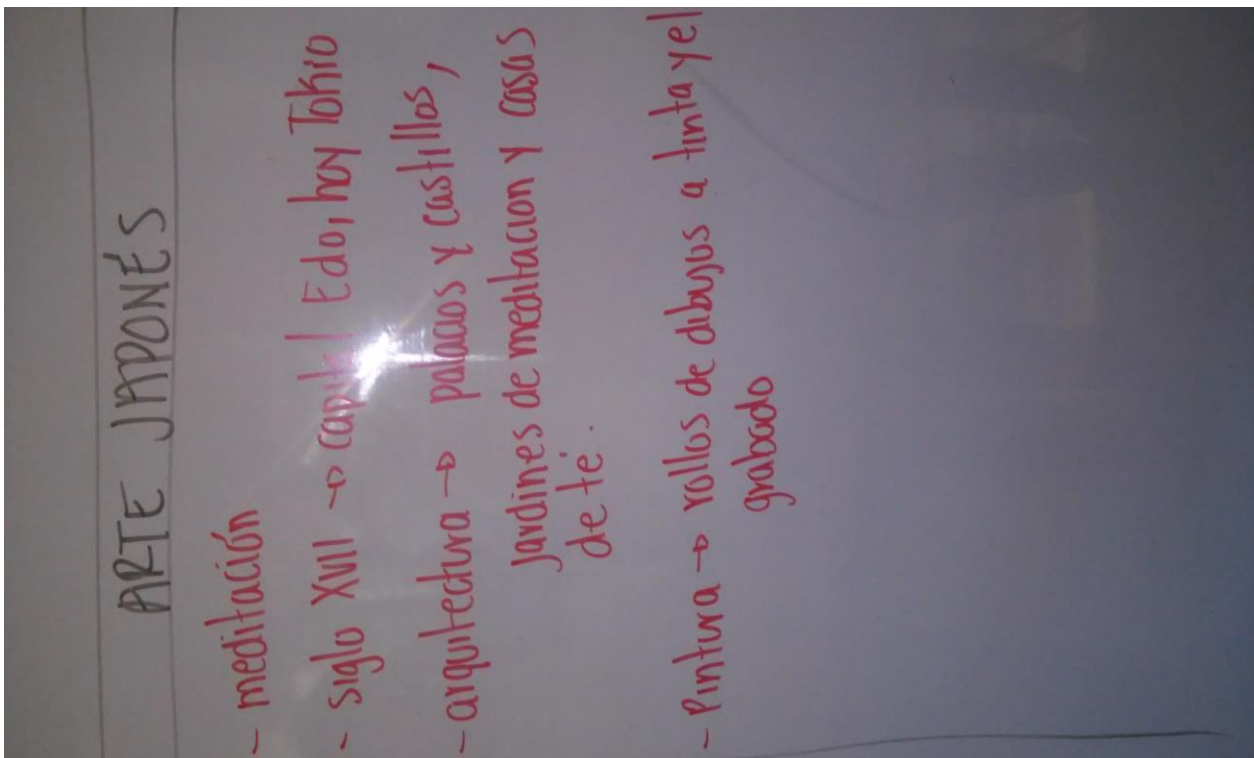 ARTE JAPONÉS
- meditación
- siglo XVII → capital Edo, hoy Tokio
- arquitectura → palacios y castillos,
jardines de meditacion y casas
de té.
- Pintura → rollos de dibujos a tinta y el
grabado